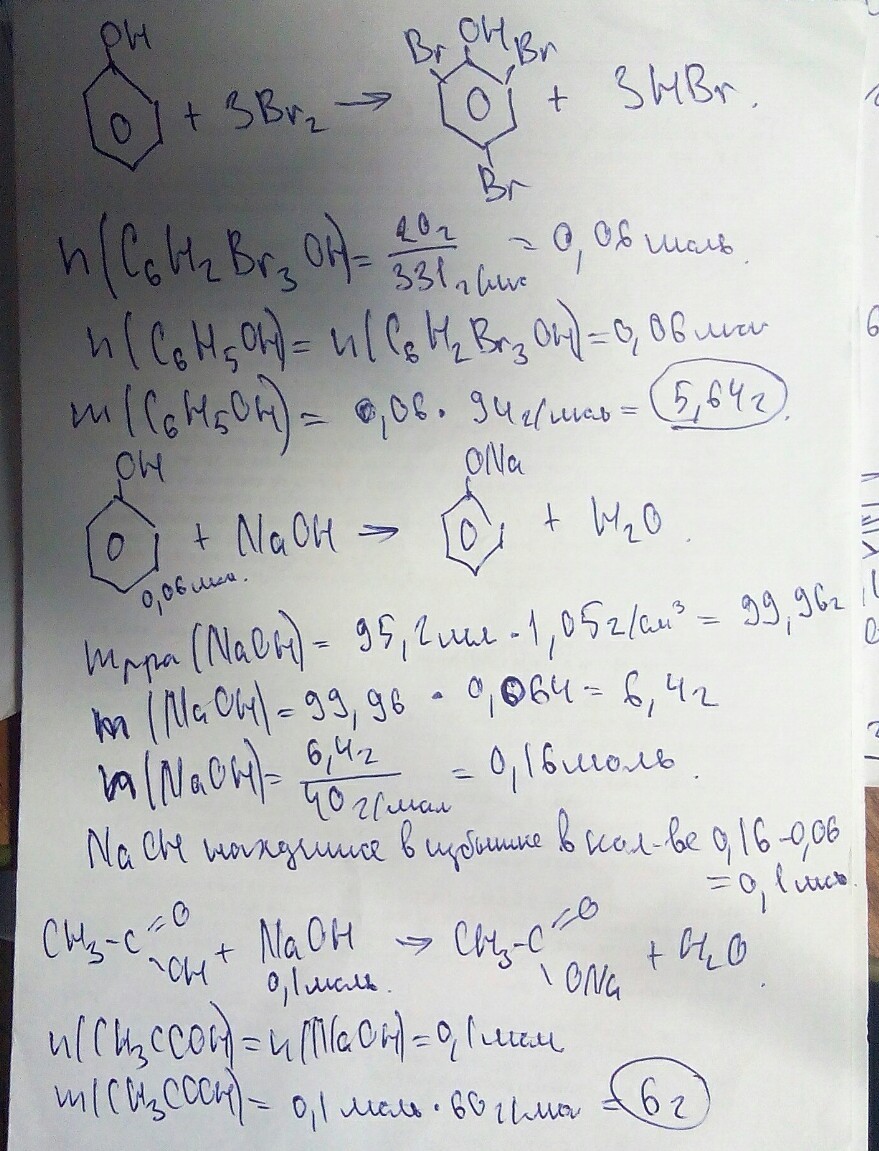 OH
Br OH Br
+ 3Br₂ → + 3HBr.
Br
n(C₆H₂Br₃OH) = 20г / 331 г/мол = 0,06 моль.
n(C₆H₅OH) = n(C₆H₂Br₃OH) = 0,06 мол
m(C₆H₅OH) = 0,06 · 94 г/моль = 5,64 г.
OH ONa
+ NaOH → + H₂O.
0,06 мол.
m р-ра (NaOH) = 95,2 мл · 1,05 г/см³ = 99,96 г
m(NaOH) = 99,96 · 0,064 = 6,4 г
n(NaOH) = 6,4 г / 40 г/мол = 0,16 моль.
NaOH в избытке в кол-ве 0,16 - 0,06
= 0,1 моль.
CH₃-C=O OH + NaOH → CH₃-C=O ONa + H₂O.
0,1 моль.
n(CH₃COOH) = n(NaOH) = 0,1 мол
m(CH₃COOH) = 0,1 моль · 60 г/мол = 6 г